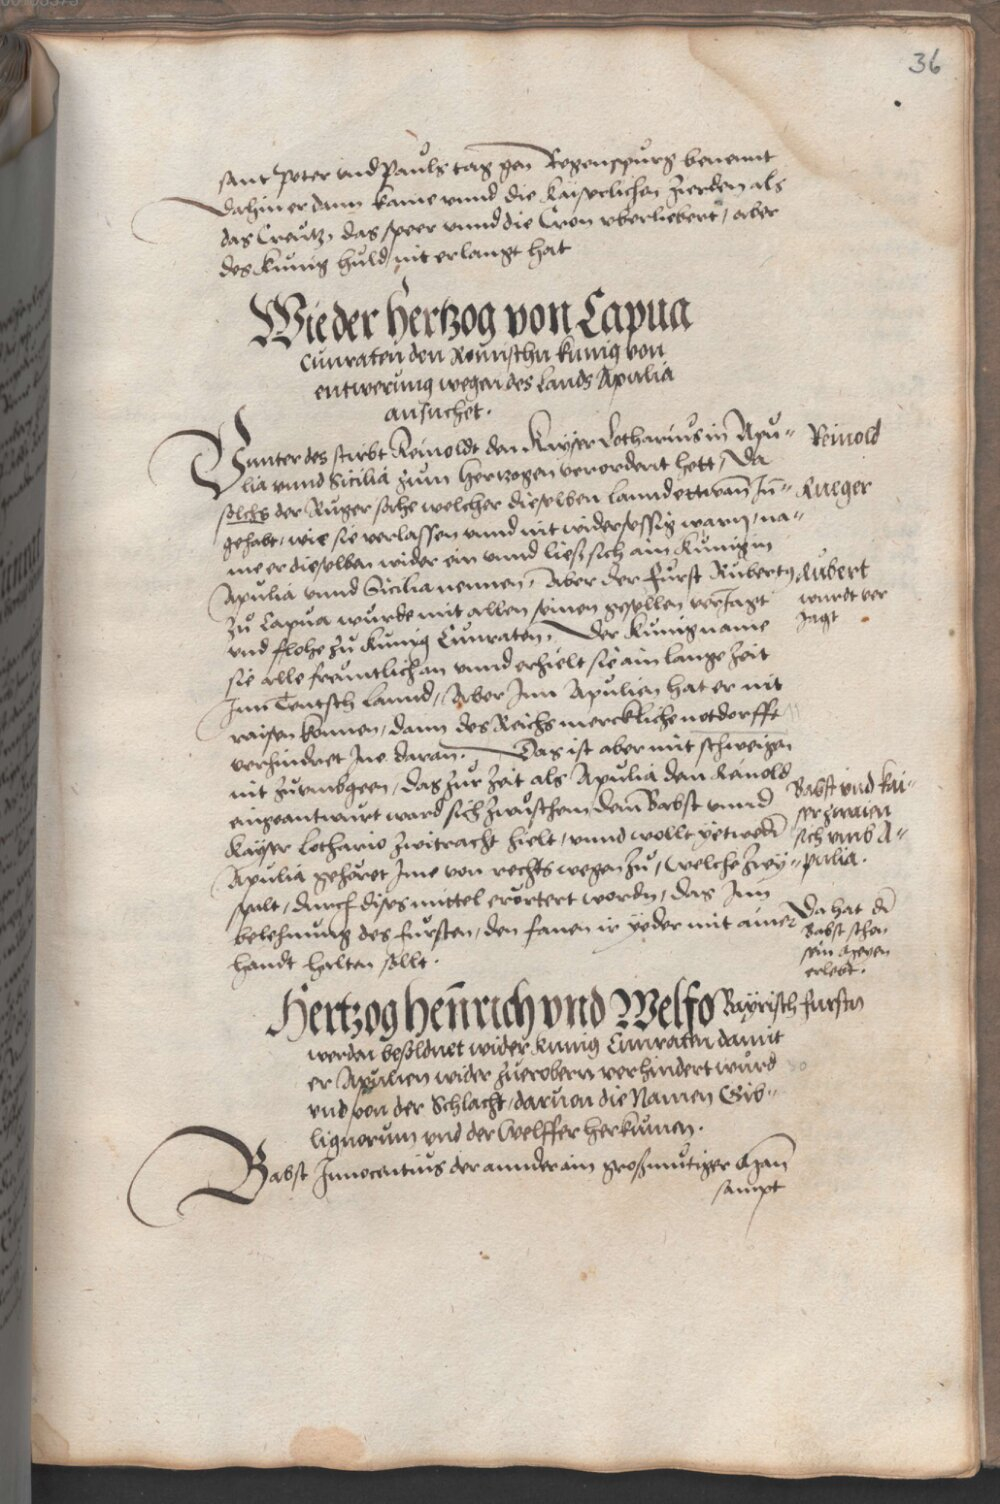 36
sant Peter vnd Pauls tag gen Regenspurg benennt
dahin er dann kame vnnd die kaiserlichen zierden als
das Creutz, das sper vnnd die Cron vberliebert, aber
des kunig huld nit erlangt hat
Wie der Hertzog von Capua
Cunraten den Romischn kunig von
entwerung wegen des Lands Apulia
ansuchet.
Vnnter des stirbt Reinoldt den Kayser Lotharius in Apu-
lia vnnd Sicilia zum Hertzogen verordent hett, Da
solchs der Ruger sahe welcher dieselben lannd ettwan Jn-
gehabt, wie sie verlassen vnnd nit widersessig warn, na-
me er dieselben wider ein vnnd ließ sich ain kunig in
Apulia vnnd Sicilia nennen, Aber der furst Rubertus
zu Capua wurde mit allen seinen gesellen veriagt
vnd flohe zu kunig Cunraten, Der kunig name
sie alle freuntlich an vnnd erhielt sie ain lange zeit
Jnn Teutsch lannd, Aber Jnn Apulien hat er nit
raisen konnen, dann des Reichs merckliche notdorfft
verhindret Jne daran. Das ist aber mit schweigen
nit zuumbgeen, das zur zeit als Apulia den Reinold
eingeantwurt ward sich zwuschen dem Babst vnnd
Kayser Lothario zwitracht hielt, vnnd wollt yetweder
Apulia gehöret Jme von rechts wegen zu, welche zwy-
spalt, durch dises mittel erortert wordn, das Jnn
belehnung des fursten, den fanen ir yeder mit ainer
handt halten sollt.
Reinold
Rueger
Rubert
wurdt ver
Jagt
Babst vnd kai-
ser zwaien
sich vmb A-
pulia.
Da hat der
Babst schon
sein
erlebt.
Hertzog Henrich vnd Welfo Bayrisch fursten
werden besoldnet wider kunig Cunraten damit
er Apulien wider zuerobern verhindert wurd
vnd von der Schlacht, daruon die Namen Gib-
lignorum vnd der Welffer herkumen.
Babst Innocentius der annder ain großmutiger Man
sampt